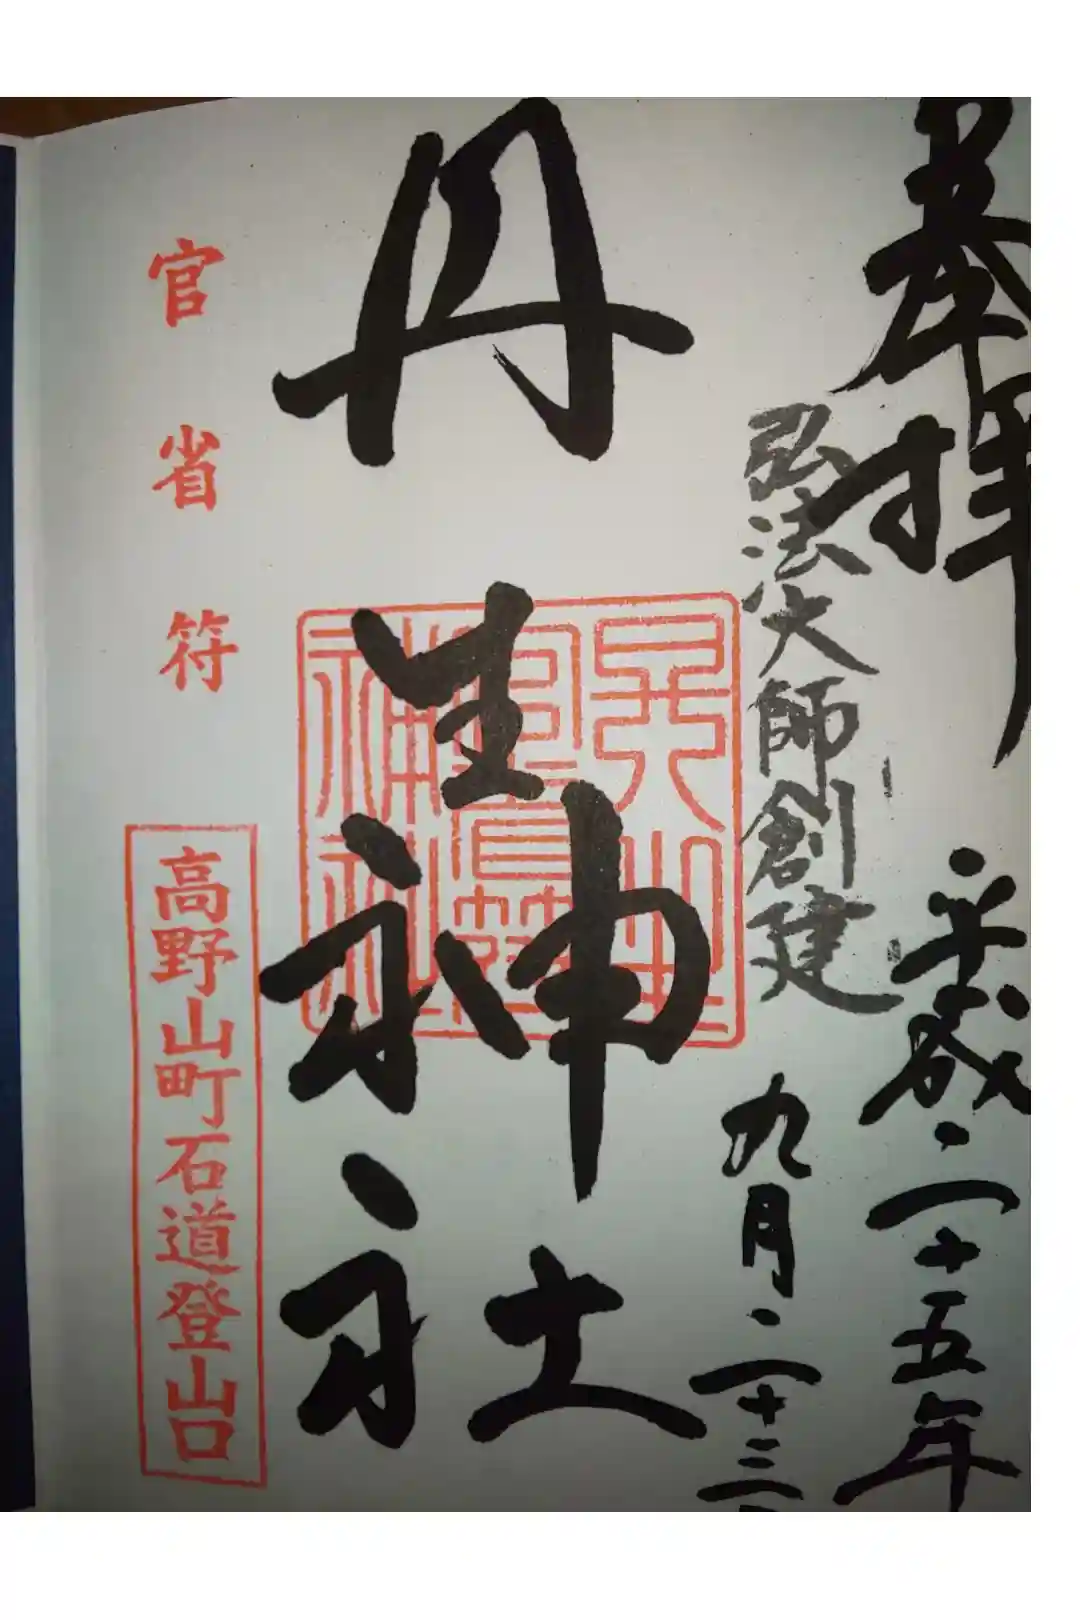 奉拝
平成二十五年
弘法大師創建
九月二十三
丹生神社
官省符
高野山町石道登山口